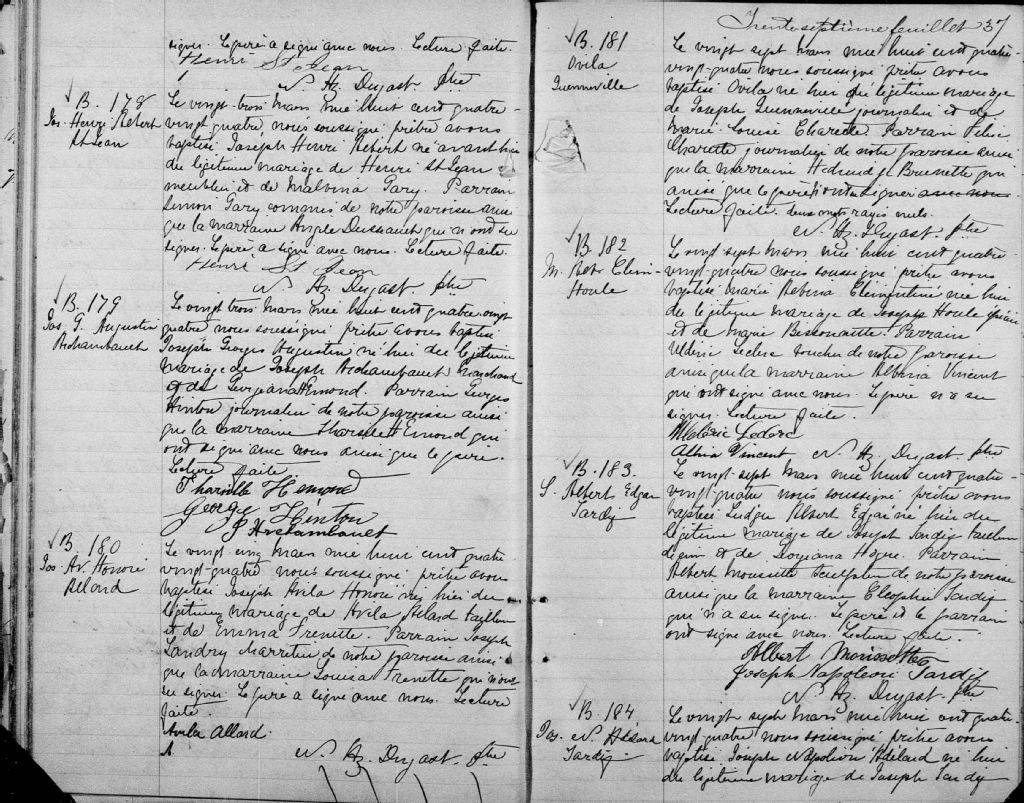 signer. Le père a signé avec nous. Lecture faite.
Henri St Jean
N. Az. Dugast. ptre
B. 178
Jos. Henri Albert
St Jean
Le vingt-trois Mars mil huit cent quatre-
vingt-quatre, nous soussigné prêtre avons
baptisé Joseph Henri Albert né avant hier
du légitime mariage de Henri St Jean
meublier et de Malvina Gary. Parrain
Simon Gary commis de notre paroisse ainsi
que la marraine Angèle Dussault qui n'ont su
signer. Le père a signé avec nous. Lecture faite.
Henri St Jean
N. Az. Dugast. ptre
B. 179
Jos. G. Augustin
Archambault
Le vingt trois Mars mil huit cent quatre-vingt
quatre nous soussigné prêtre avons baptisé
Joseph Georges Augustin né hier du légitime
mariage de Joseph Archambault marchand
et de Georgiana Hémond. Parrain Georges
Hinton journalier de notre paroisse ainsi
que la marraine Tharsile Hémond qui
ont signé avec nous ainsi que le père.
Lecture faite
Tharsille Hemond
George Hinton
J Archambault
B. 180
Jos Av. Honoré
Allard
Le vingt cinq Mars mil huit cent quatre
vingt-quatre nous soussigné prêtre avons
baptisé Joseph Avila Honoré né hier du
légitime mariage de Avila Allard tailleur
et de Emma Frenette. Parrain Joseph
Landry charretier de notre paroisse ainsi
que la marraine Louisa Frenette qui n'ont
su signer. Le père a signé avec nous. Lecture
faite.
Avila Allard.
N. Az. Dugast. ptre
Trente septième feuillet 37
B. 181
Ovila
Quenneville
Le vingt sept Mars mil huit cent quatre-
vingt-quatre nous soussigné prêtre avons
baptisé Ovila né hier du légitime mariage
de Joseph Quenneville journalier et de
Marie-Louise Charette. Parrain Félix
Charette journalier de notre paroisse ainsi
que la marraine Hedwidge Brunette qui
ainsi que le père n'ont su signer avec nous.
Lecture faite. deux mots rayés nuls.
N. Az. Dugast. ptre
B. 182
M. Alb. Clém-
Houle
Le vingt-sept Mars mil huit cent quatre-
vingt-quatre nous soussigné prêtre avons
baptisé Marie Albina Clémentine née hier
du légitime mariage de Joseph Houle
et de Marie Bissonnette. Parrain
Uldéric Leclerc boucher de notre paroisse
ainsi que la marraine Albina Vincent
qui ont signé avec nous. Le père n'a su
signer. Lecture faite.
Uldéric Leclerc
Albina Vincent N. Az. Dugast. ptre
B. 183.
L. Albert Edgar
Tardif
Le vingt-sept Mars mil huit cent quatre-
vingt-quatre nous soussigné prêtre avons
baptisé Ludger Albert Edgar né hier du
légitime mariage de Joseph Tardif tailleur
de cuir et de Hogue. Parrain
Albert Moussette sculpteur de notre paroisse
ainsi que la marraine Cléophie Tardif
qui n'a su signer. Le père et le parrain
ont signé avec nous. Lecture faite.
Albert Morissette
Joseph Napoleon Tardif
N. Az. Dugast. ptre
B. 184
Jos. N. Adélard
Tardif
Le vingt sept Mars mil huit cent quatre-
vingt quatre nous soussigné prêtre avons
baptisé Joseph Napoléon Adélard né hier
du légitime mariage de Joseph Tardif